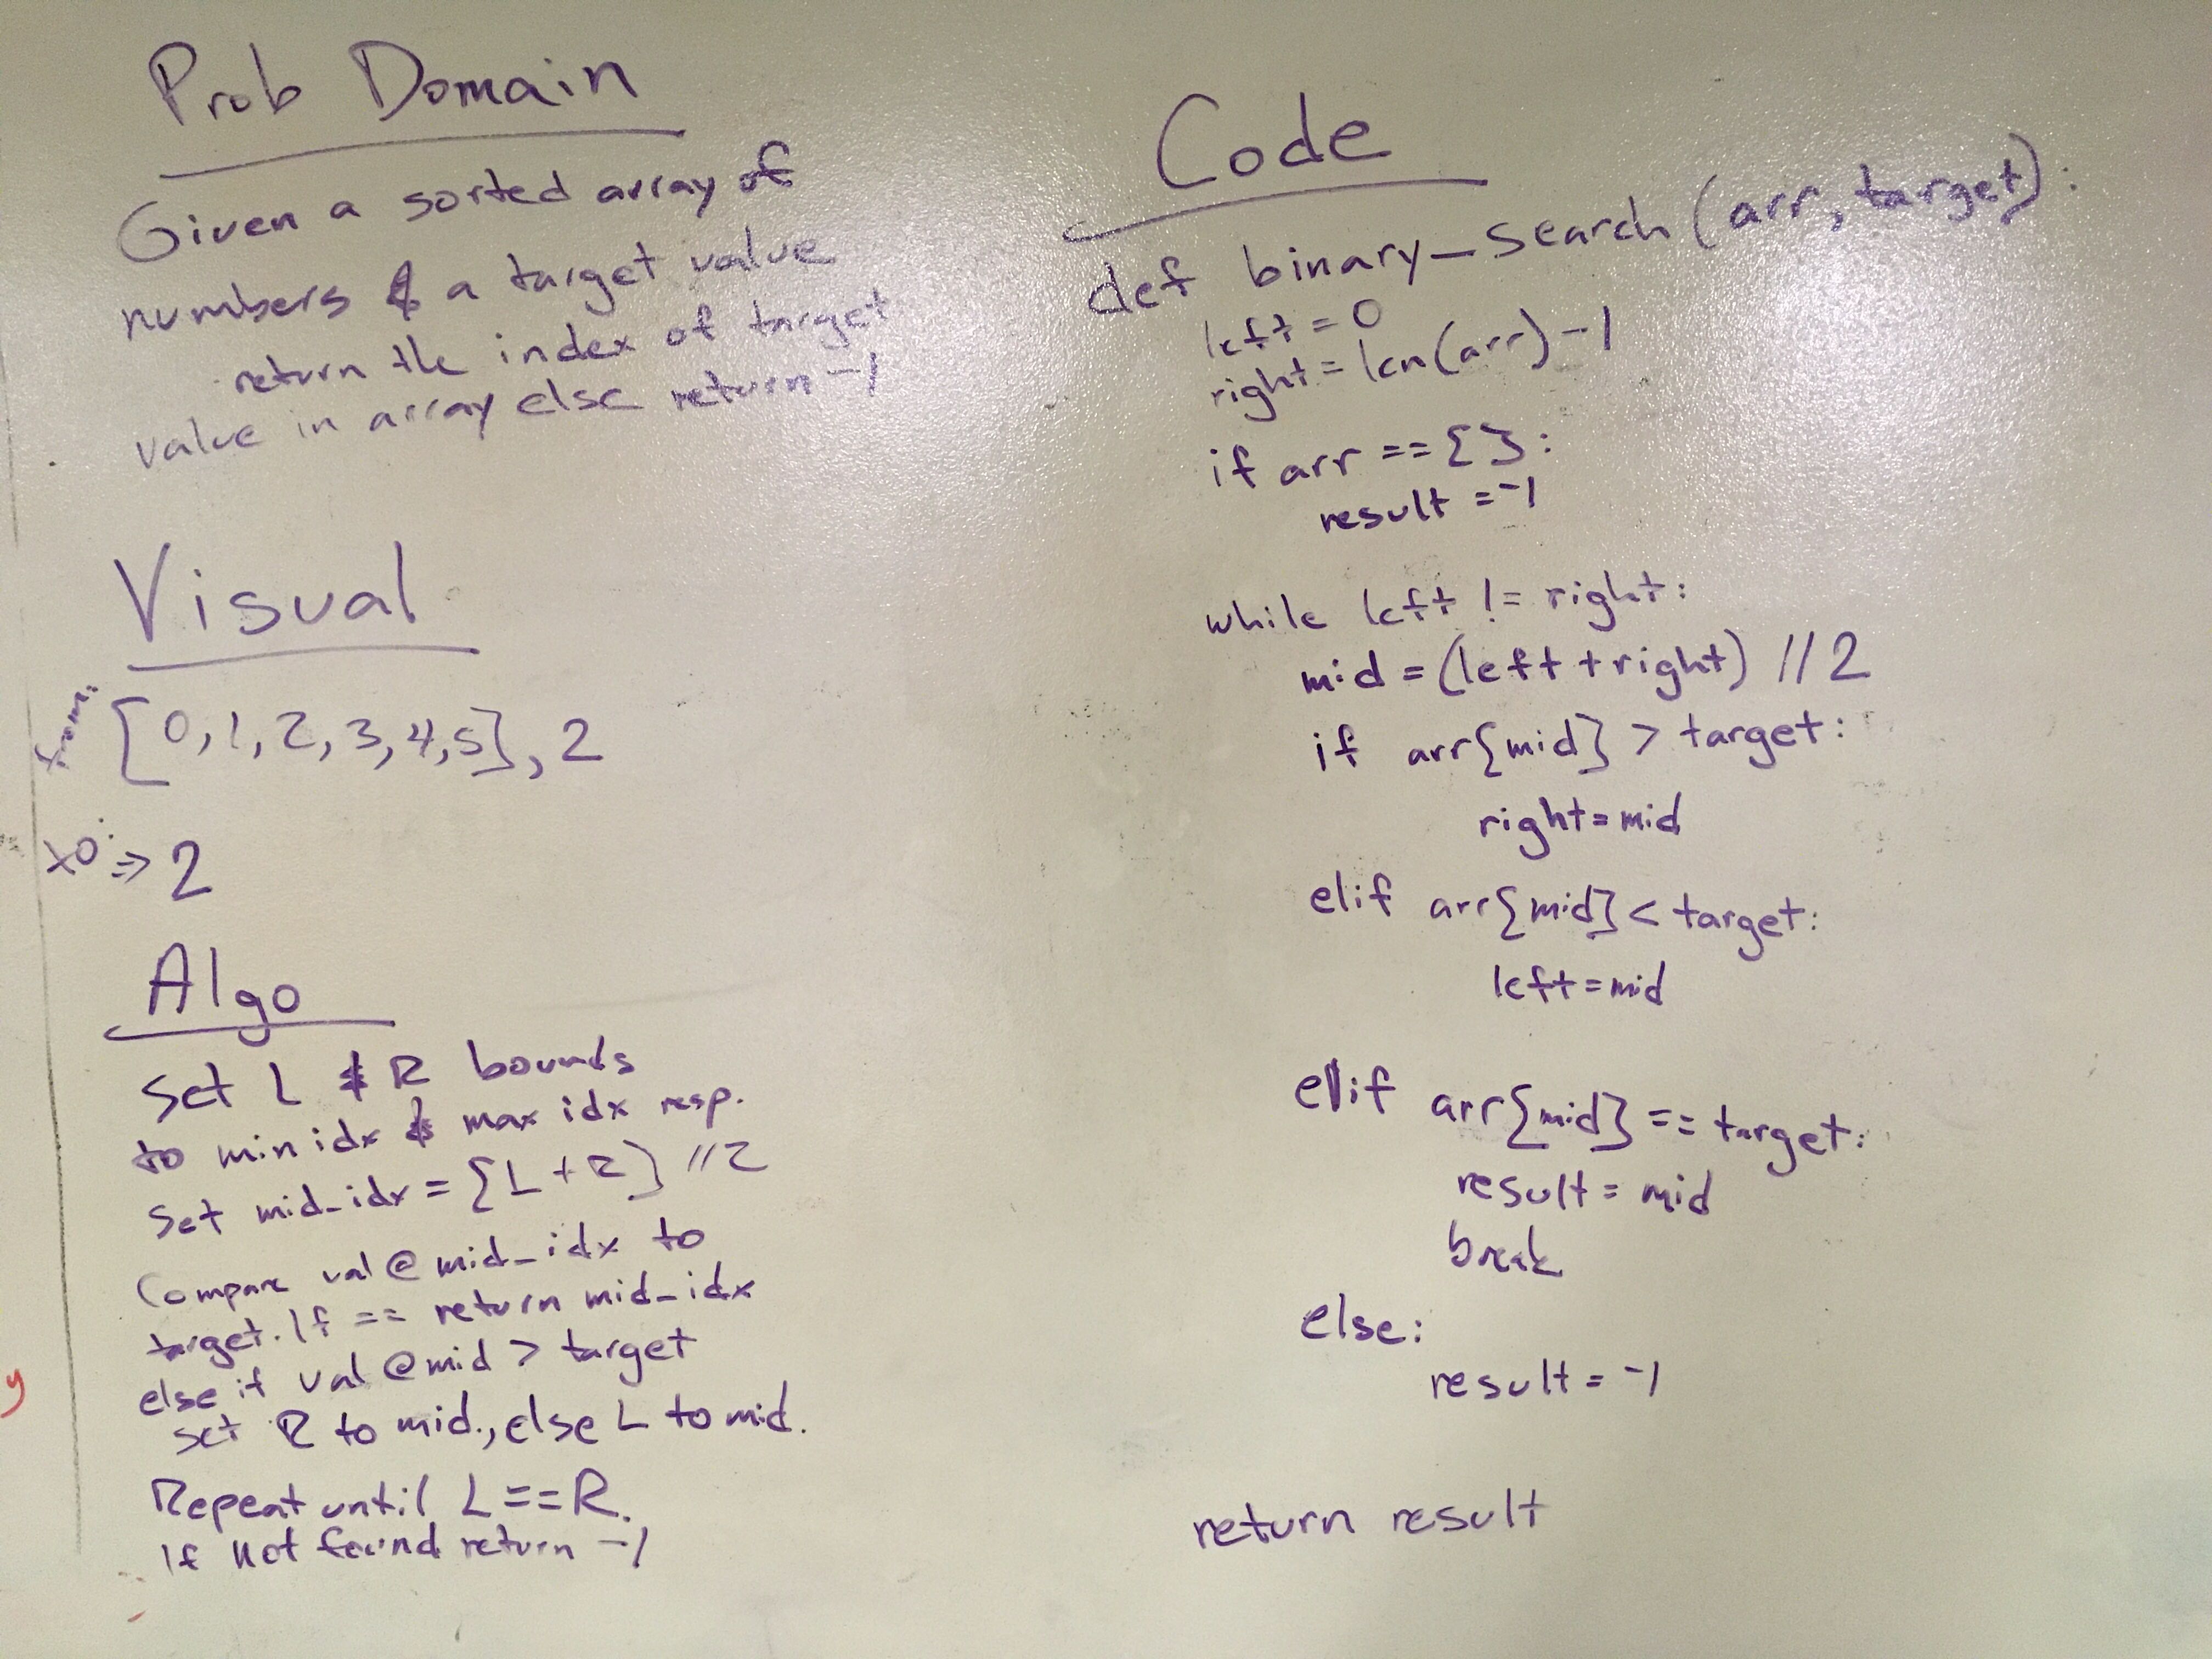 Prob Domain
Given a sorted array of
numbers & a target value
return the index of target
value in array else return -1
Visual
from: [0,1,2,3,4,5], 2
to: => 2
Algo
Set L & R bounds
to min idx & max idx resp.
Set mid_idx = [L + R] //2
Compare val @ mid_idx to
target. If == return mid_idx
else if val @ mid > target
set R to mid., else L to mid.
Repeat until L==R.
If not found return -1
y
Code
def binary_search (arr, target):
left = 0
right = len(arr) -1
if arr == []:
result = -1
while left != right:
mid = (left + right) //2
if arr[mid] > target:
right = mid
elif arr[mid] < target:
left = mid
elif arr[mid] == target:
result = mid
break
else:
result = -1
return result